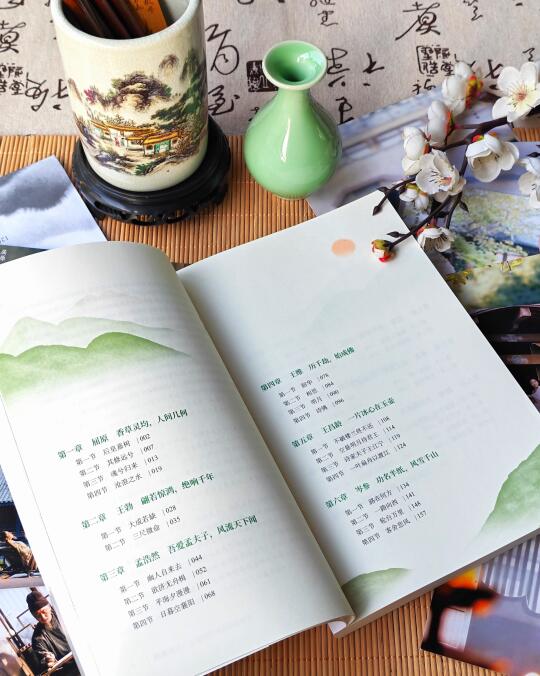 第一章 屈原 香草灵均，人间几何
第一节 后皇嘉树 |002
第二节 其修远兮 |007
第三节 魂兮归来 |013
第四节 汝浪之水 |019
第二章 王勃 翩若惊鸿，绝响千年
第一节 大成若缺 |028
第二节 三尺微命 |035
第三章 孟浩然 吾爱孟夫子，风流天下闻
第一节 幽人自来去 |044
第二节 欲济无舟楫 |052
第三节 平海夕漫漫 |061
第四节 日暮空襄阳 |068
第四章 王维 历千劫，始成佛
第一节 韶华 |078
第二节 相思 |084
第三节 明月 |090
第四节 诗佛 |096
第五章 王昌龄 一片冰心在玉壶
第一节 不破楼兰终不还 |108
第二节 空悬明月待君王 |114
第三节 诗家夫子王江宁 |119
第四节 一叶扁舟以渡江 |124
第六章 岑参 功名半纸，风雪千山
第一节 路在何方 |134
第二节 一路向西 |141
第三节 轮台万里 |146
第四节 客舍悲风 |157